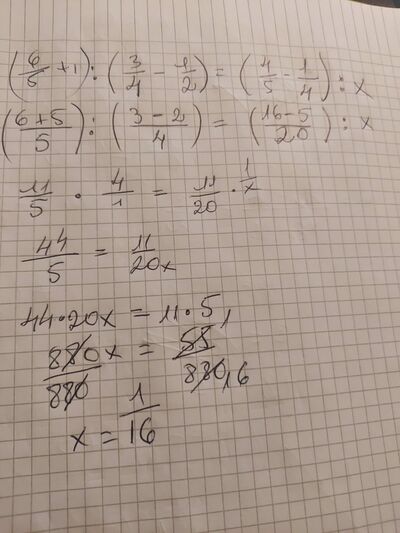 (6/5 + 1) : (3/4 - 1/2) = (4/5 - 1/4) : x
(6+5/5) : (3-2/4) = (16-5/20) : x
11/5 · 4/1 = 11/20 · 1/x
44/5 = 11/20x
44·20x = 11·5
880x/880 = 55/880 1 16
x = 1/16